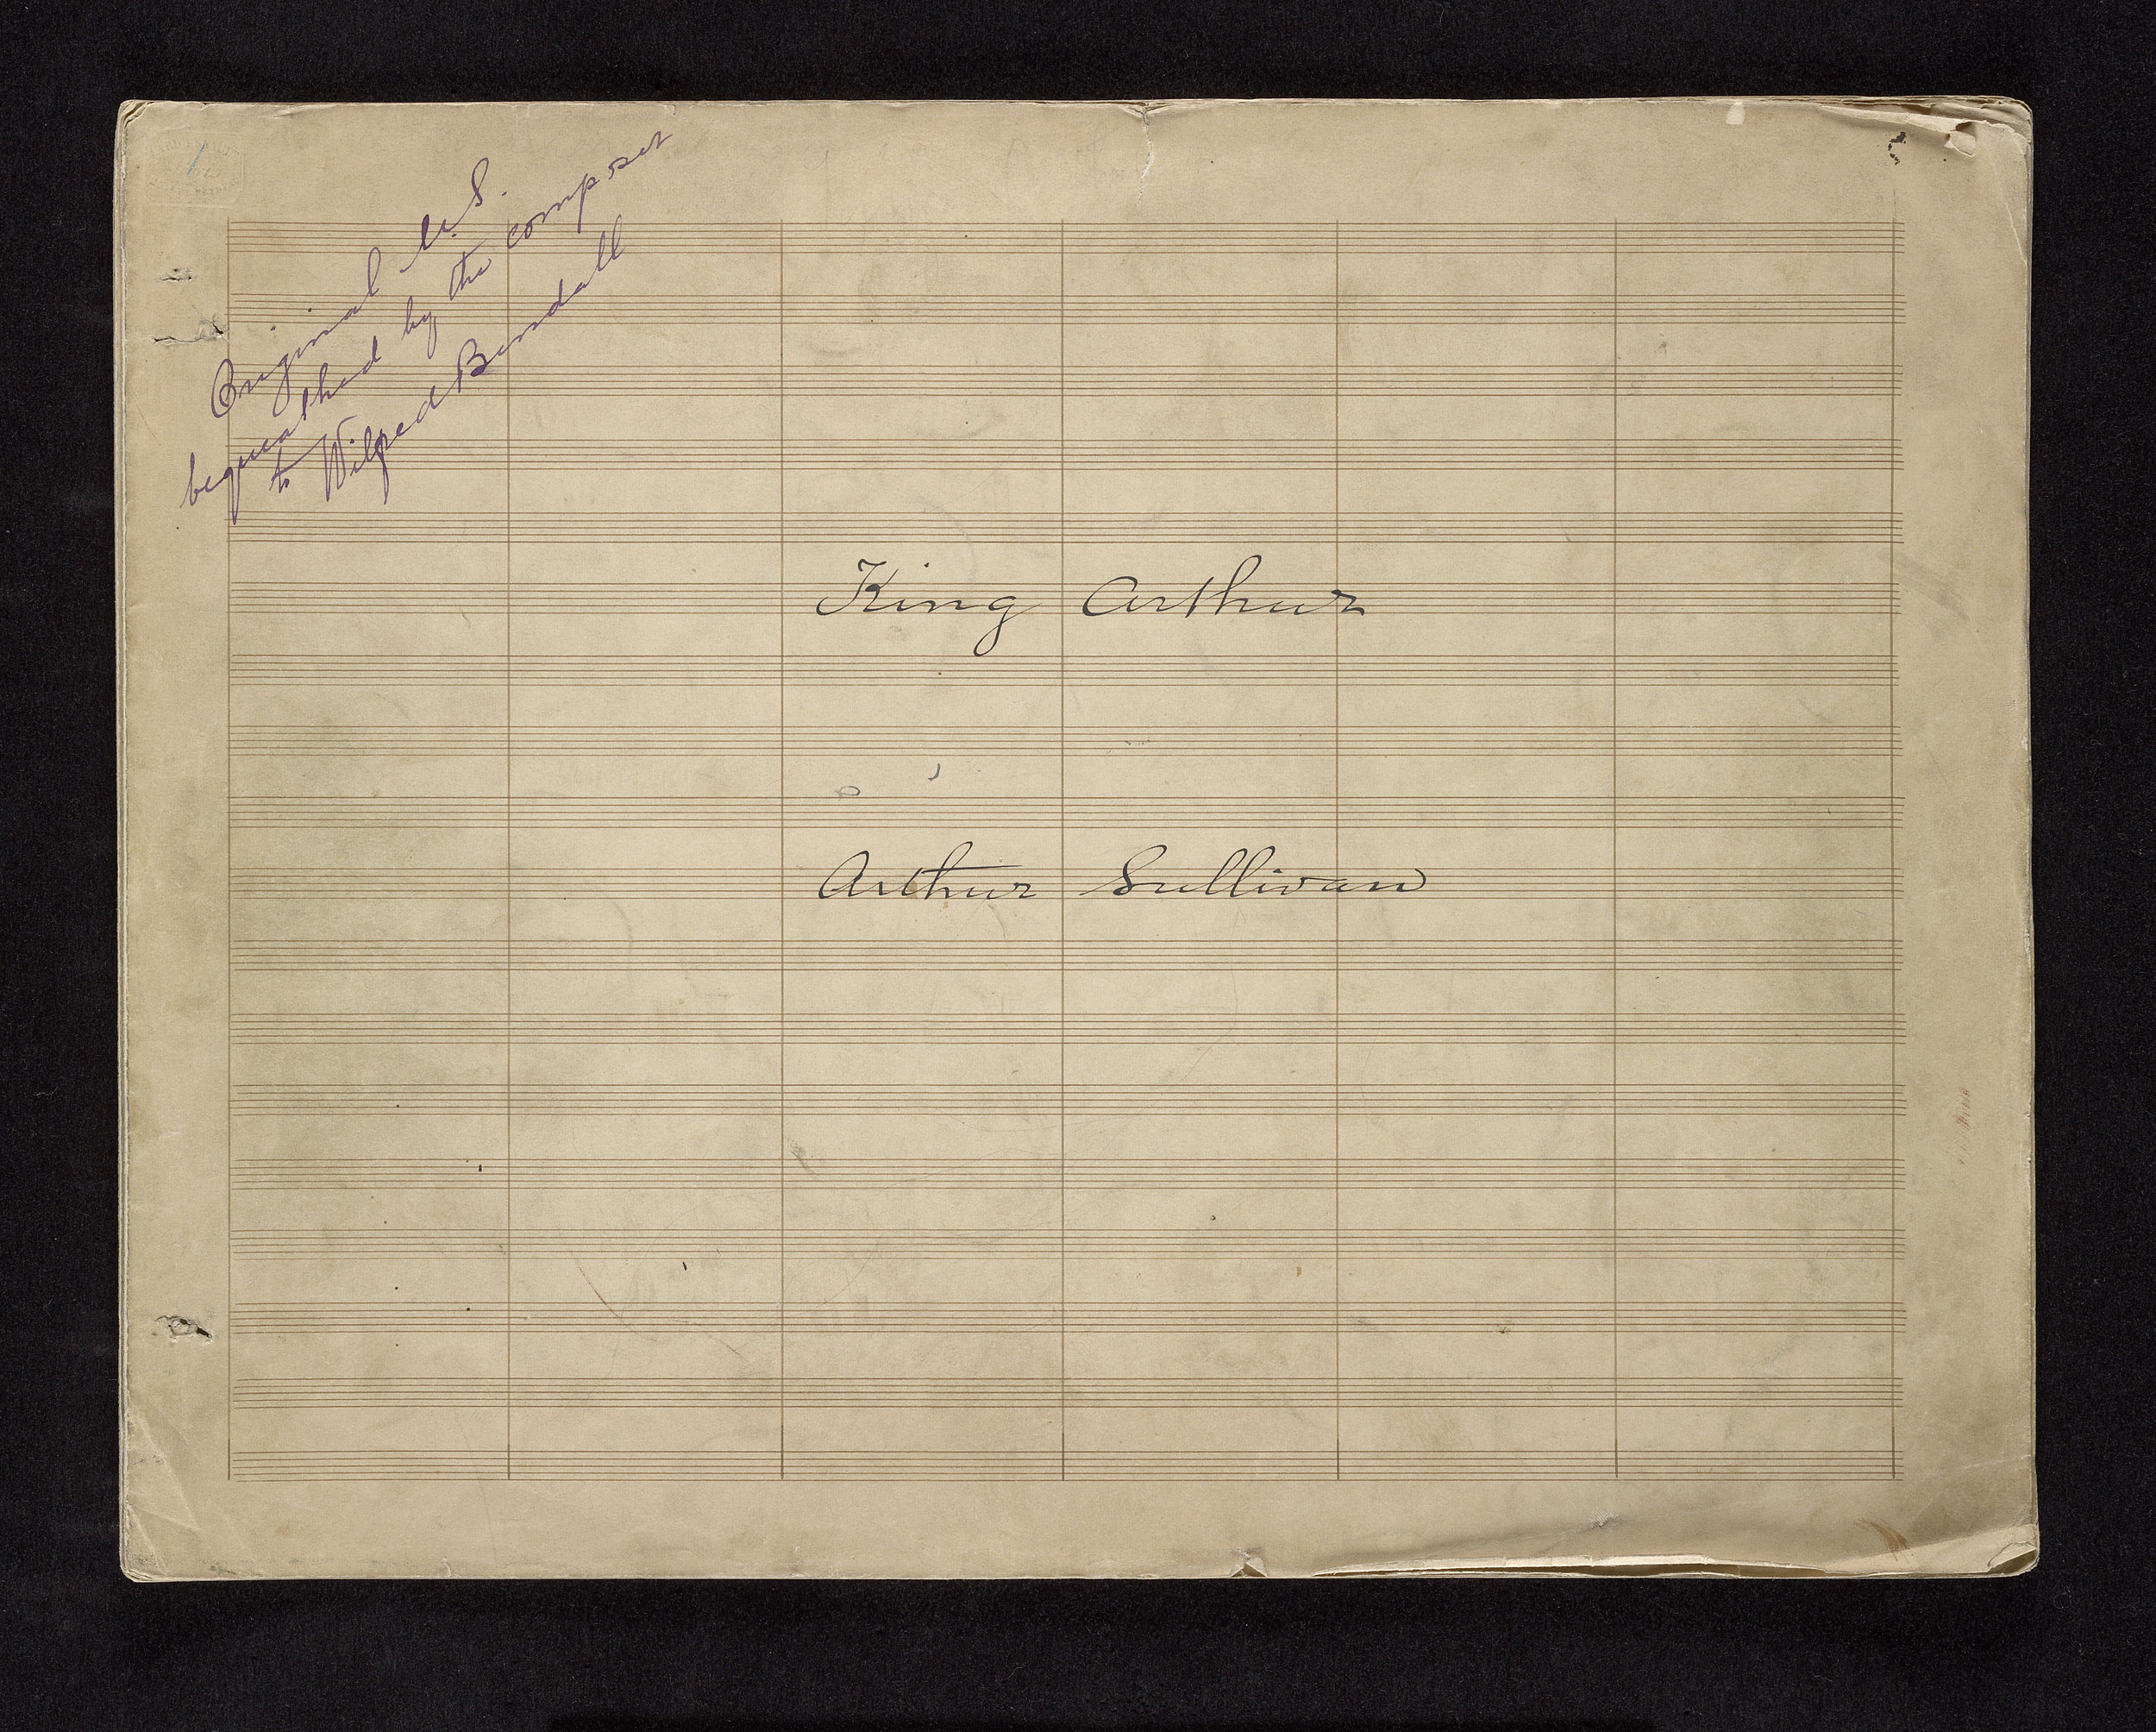 Original M.S.
bequeathed by the composer
to Wilfred Bendall
King Arthur
Arthur Sullivan